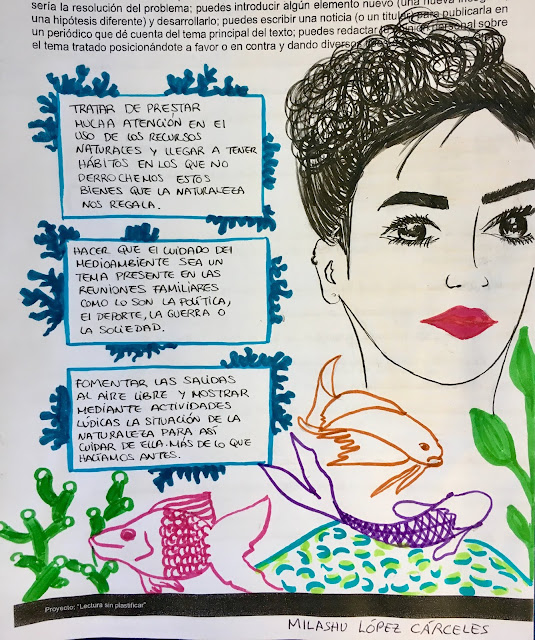 sería la resolución del problema; puedes introducir algún elemento nuevo (una nueva
una hipótesis diferente) y desarrollarlo; puedes escribir una noticia (o un titular) para publicarla en
un periódico que dé cuenta del tema principal del texto; puedes redactar personal sobre
el tema tratado posicionándote a favor o en contra y dando
TRATAR DE PRESTAR
MUCHA ATENCIÓN EN EL
USO DE LOS RECURSOS
NATURALES Y LLEGAR A TENER
HÁBITOS EN LOS QUE NO
DERROCHEMOS ESTOS
BIENES QUE LA NATURALEZA
NOS REGALA.
HACER QUE El CUIDADO DEl
MEDIOAMBIENTE SEA UN
TEMA PRESENTE EN LAS
REUNIONES FAMILIARES
COMO LO SON LA POLÍTICA,
El DEPORTE, LA GUERRA O
LA SOCIEDAD.
FOMENTAR LAS SALIDAS
AL AIRE LIBRE Y MOSTRAR
MEDIANTE ACTIVIDADES
LÚDICAS LA SITUACIÓN DE LA
NATURALEZA PARA ASÍ
CUIDAR DE ELLA MÁS DE LO QUE
HACÍAMOS ANTES.
Proyecto: "Lectura sin plastificar"
MILASHU LÓPEZ CÁRCELES